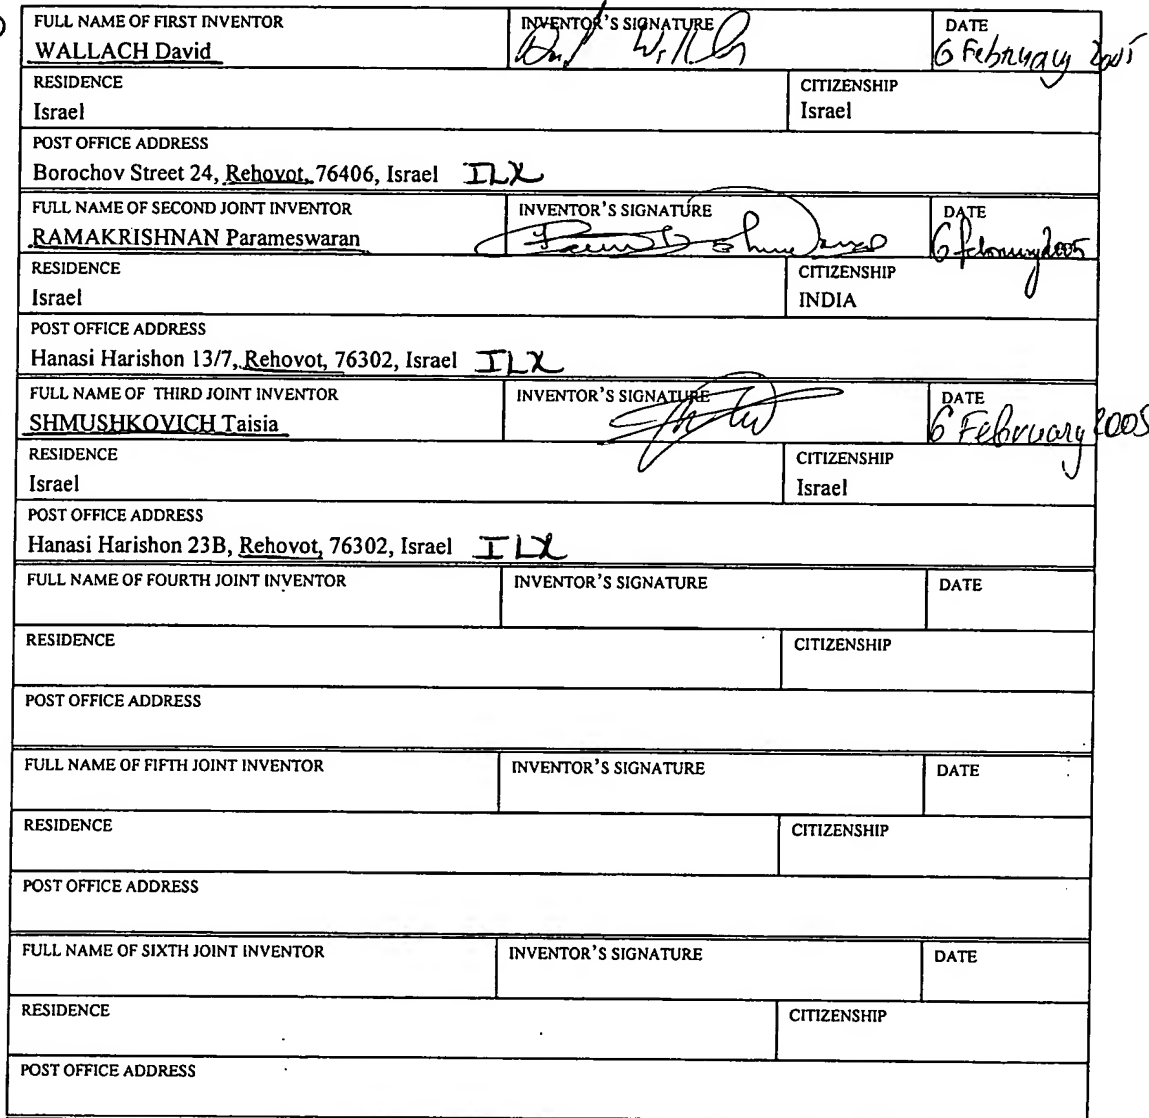 FULL NAME OF FIRST INVENTOR INVENTOR'S SIGNATURE DATE
WALLACH David 6 February 2005
RESIDENCE CITIZENSHIP
Israel Israel
POST OFFICE ADDRESS
Borochov Street 24, Rehovot, 76406, Israel ILX
FULL NAME OF SECOND JOINT INVENTOR INVENTOR'S SIGNATURE DATE
RAMAKRISHNAN Parameswaran 6 february 2005
RESIDENCE CITIZENSHIP
Israel INDIA
POST OFFICE ADDRESS
Hanasi Harishon 13/7, Rehovot, 76302, Israel ILX
FULL NAME OF THIRD JOINT INVENTOR INVENTOR'S SIGNATURE DATE
SHMUSHKOVICH Taisia 6 February 2005
RESIDENCE CITIZENSHIP
Israel Israel
POST OFFICE ADDRESS
Hanasi Harishon 23B, Rehovot, 76302, Israel ILX
FULL NAME OF FOURTH JOINT INVENTOR INVENTOR'S SIGNATURE DATE
RESIDENCE CITIZENSHIP
POST OFFICE ADDRESS
FULL NAME OF FIFTH JOINT INVENTOR INVENTOR'S SIGNATURE DATE
RESIDENCE CITIZENSHIP
POST OFFICE ADDRESS
FULL NAME OF SIXTH JOINT INVENTOR INVENTOR'S SIGNATURE DATE
RESIDENCE CITIZENSHIP
POST OFFICE ADDRESS